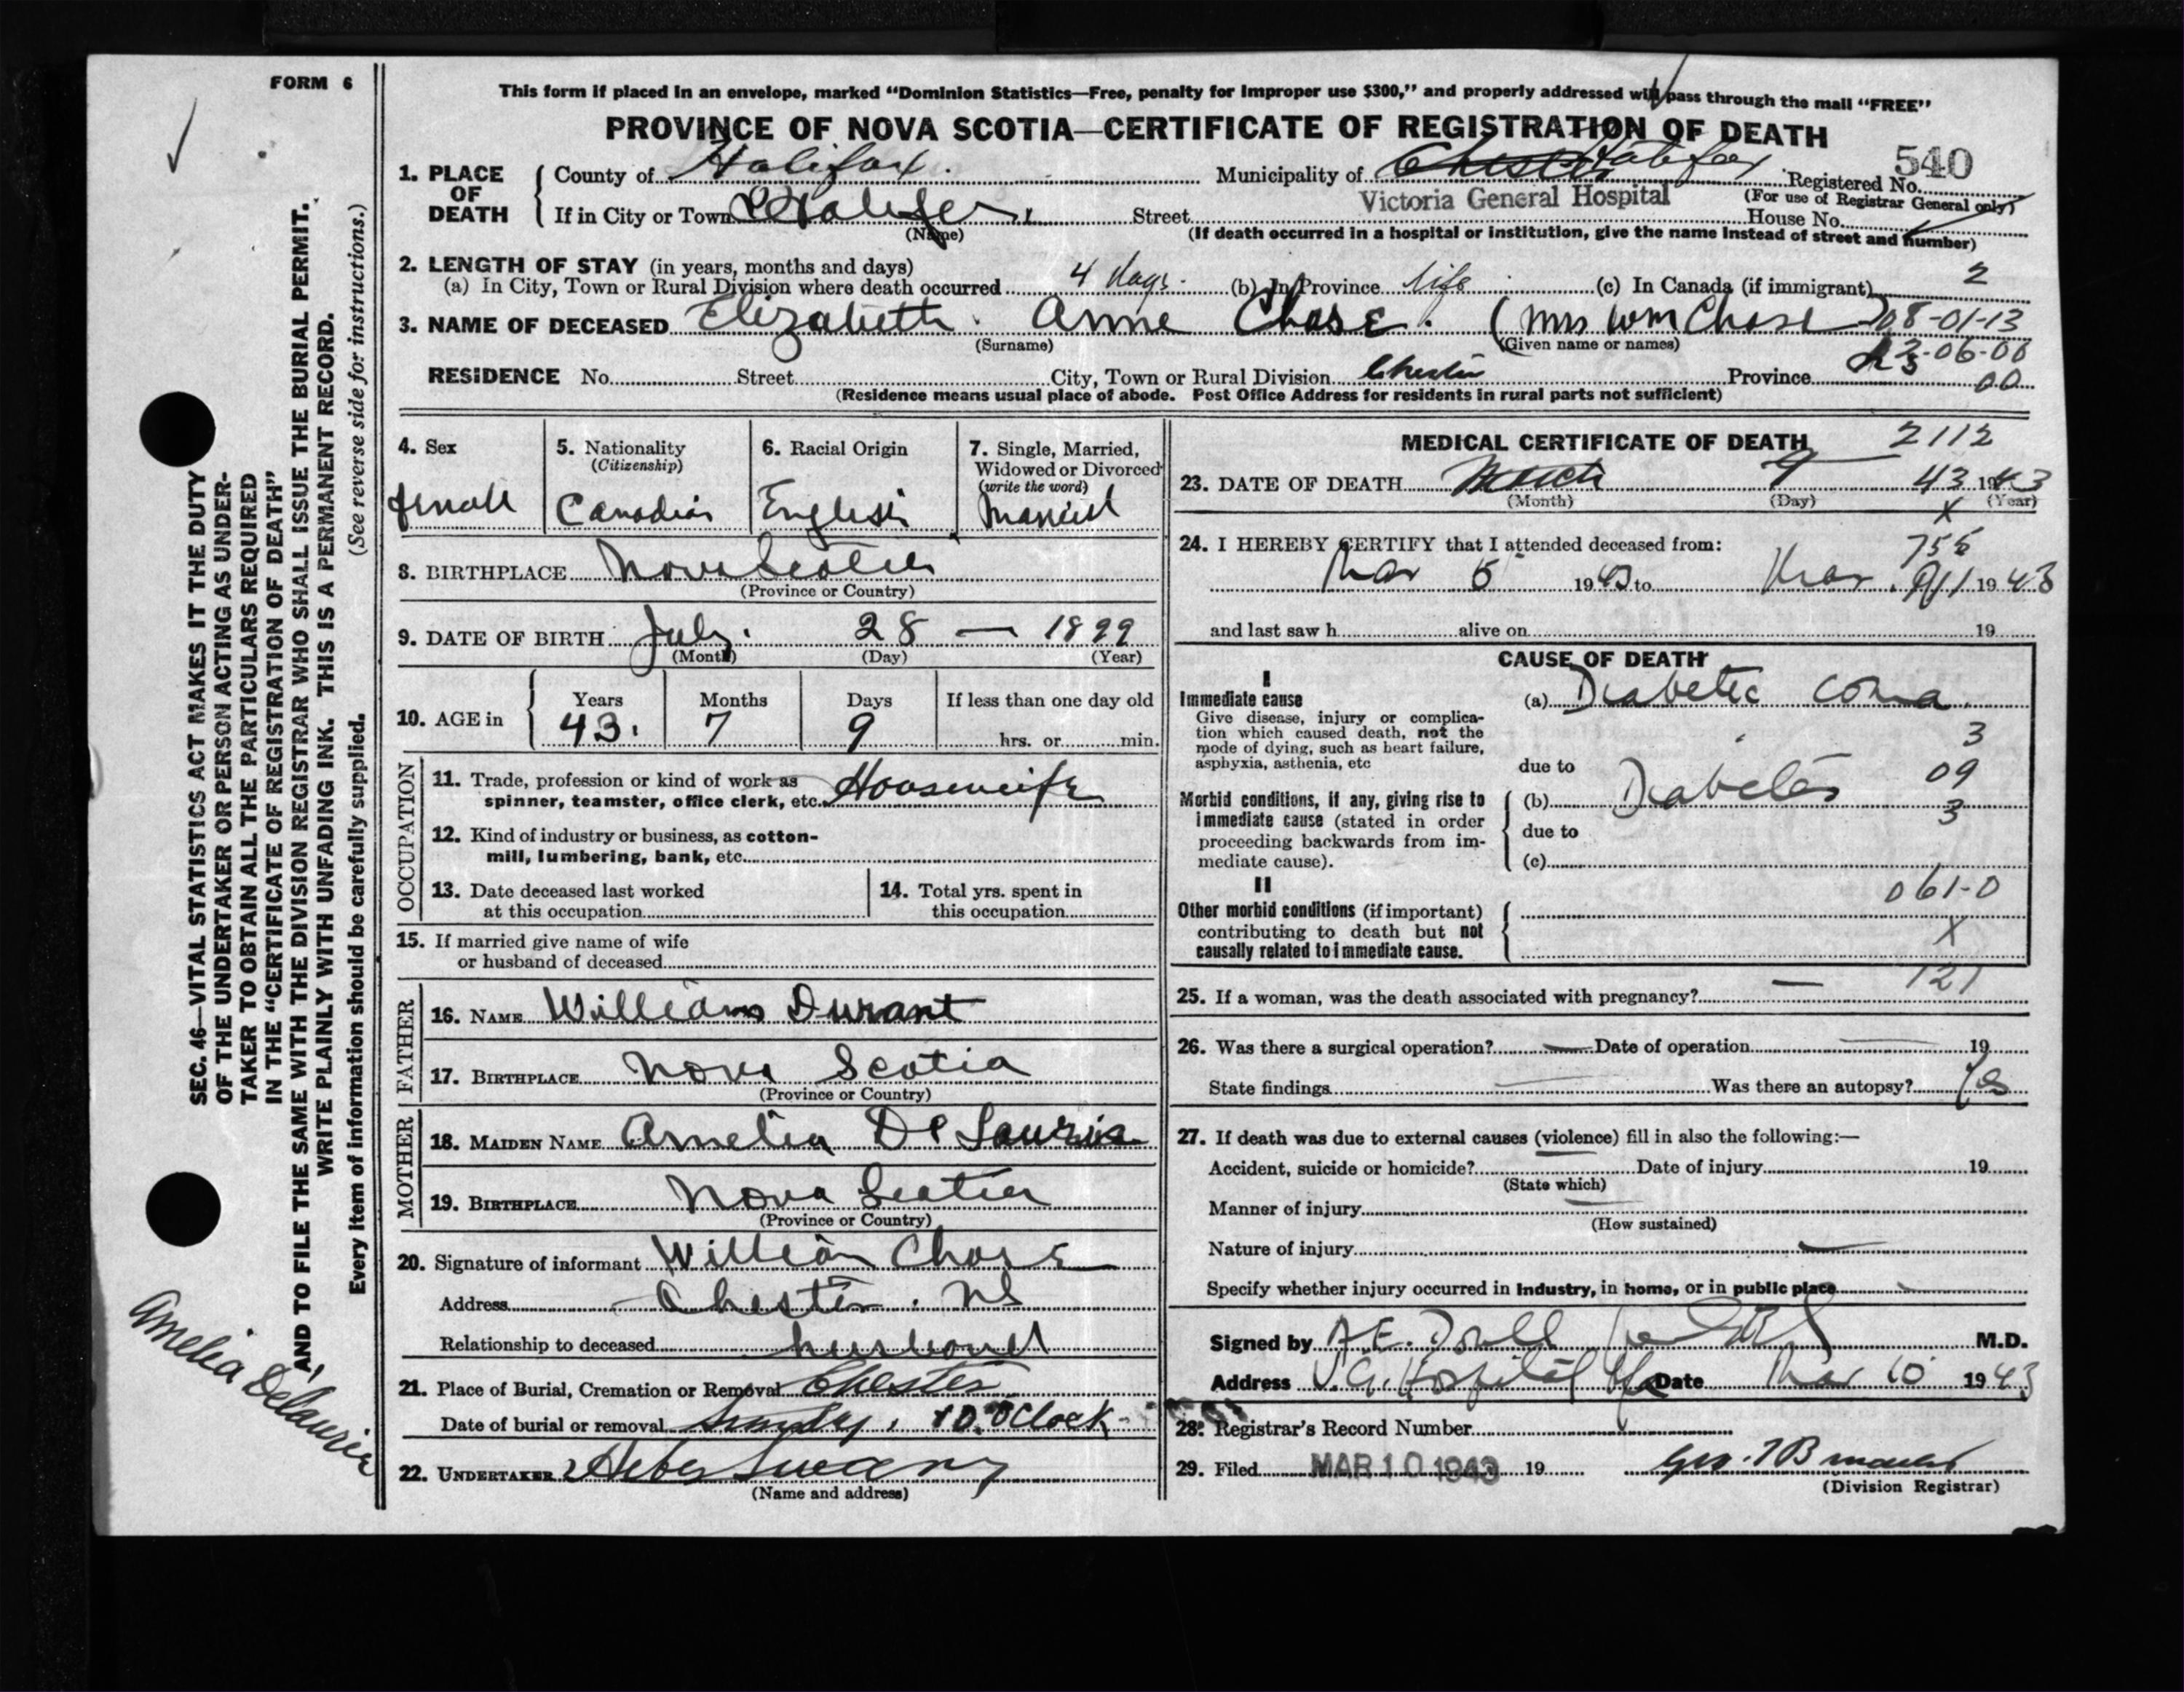 FORM 6
This form if placed in an envelope, marked "Dominion Statistics—Free, penalty for improper use $300," and properly addressed will pass through the mail "FREE"
PROVINCE OF NOVA SCOTIA—CERTIFICATE OF REGISTRATION OF DEATH
540
1. PLACE OF DEATH
County of Halifax Municipality of Chester Halifax Registered No.
(For use of Registrar General only)
If in City or Town Halifax Street Victoria General Hospital House No.
(Name) (If death occurred in a hospital or institution, give the name instead of street and number)
2. LENGTH OF STAY (in years, months and days)
(a) In City, Town or Rural Division where death occurred 4 days. (b) In Province life (c) In Canada (if immigrant) 2
3. NAME OF DECEASED Elizabeth Anne Chase. (Mrs Wm Chase) 08-01-13
(Surname) (Given name or names)
06-00
RESIDENCE No. Street City, Town or Rural Division Chester Province 00
(Residence means usual place of abode. Post Office Address for residents in rural parts not sufficient)
4. Sex
female
5. Nationality
(Citizenship)
Canadian
6. Racial Origin
English
7. Single, Married,
Widowed or Divorced
(write the word)
Married
8. BIRTHPLACE Nova Scotia
(Province or Country)
9. DATE OF BIRTH July. 28 — 1899
(Month) (Day) (Year)
10. AGE in
Years Months Days If less than one day old
43. 7 9 hrs. or min.
OCCUPATION
11. Trade, profession or kind of work as
spinner, teamster, office clerk, etc. Housewife
12. Kind of industry or business, as cotton-
mill, lumbering, bank, etc.
13. Date deceased last worked
at this occupation
14. Total yrs. spent in
this occupation
15. If married give name of wife
or husband of deceased
FATHER
16. NAME William Durant
17. BIRTHPLACE Nova Scotia
(Province or Country)
MOTHER
18. MAIDEN NAME Amelia De Lauria
19. BIRTHPLACE Nova Scotia
(Province or Country)
20. Signature of informant William Chase
Address Chester. NS
Relationship to deceased husband
21. Place of Burial, Cremation or Removal Chester
Date of burial or removal Sunday, O'Clock
22. UNDERTAKER
(Name and address)
MEDICAL CERTIFICATE OF DEATH 2112
23. DATE OF DEATH March 9 43 1943
(Month) (Day) (Year)
X
24. I HEREBY CERTIFY that I attended deceased from:
Mar 5 1943 to Mar. 1943
and last saw h alive on 19
CAUSE OF DEATH
I
Immediate cause (a) Diabetic coma
Give disease, injury or complica-
tion which caused death, not the
mode of dying, such as heart failure,
asphyxia, asthenia, etc
3
due to 09
Morbid conditions, if any, giving rise to
immediate cause (stated in order
proceeding backwards from im-
mediate cause).
(b) Diabetes
3
due to
(c)
II
061-0
Other morbid conditions (if important)
contributing to death but not
causally related to immediate cause.
X
121
25. If a woman, was the death associated with pregnancy? —
26. Was there a surgical operation? — Date of operation — 19
State findings — Was there an autopsy? Yes
27. If death was due to external causes (violence) fill in also the following:—
Accident, suicide or homicide? Date of injury 19
(State which)
Manner of injury
(How sustained)
Nature of injury —
Specify whether injury occurred in industry, in home, or in public place
Signed by M.D.
Address V.G. Hospital Hfx Date Mar 10 1943
28. Registrar's Record Number
29. Filed MAR 10 1943 19
(Division Registrar)
SEC. 46—VITAL STATISTICS ACT MAKES IT THE DUTY
OF THE UNDERTAKER OR PERSON ACTING AS UNDER-
TAKER TO OBTAIN ALL THE PARTICULARS REQUIRED
IN THE "CERTIFICATE OF REGISTRATION OF DEATH"
AND TO FILE THE SAME WITH THE DIVISION REGISTRAR WHO SHALL ISSUE THE BURIAL PERMIT.
WRITE PLAINLY WITH UNFADING INK. THIS IS A PERMANENT RECORD.
Every item of information should be carefully supplied. (See reverse side for instructions.)
Amelia DeLaurier